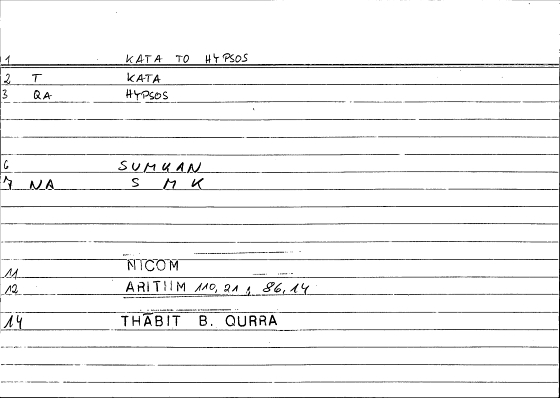 1 KATA TO HYPSOS
2 T KATA
3 QA HYPSOS
6 SUMKAN
7 NA S M K
11 NICOM
12 ARITIIM 110,21 ; 86,14
14 THĀBIT B. QURRA